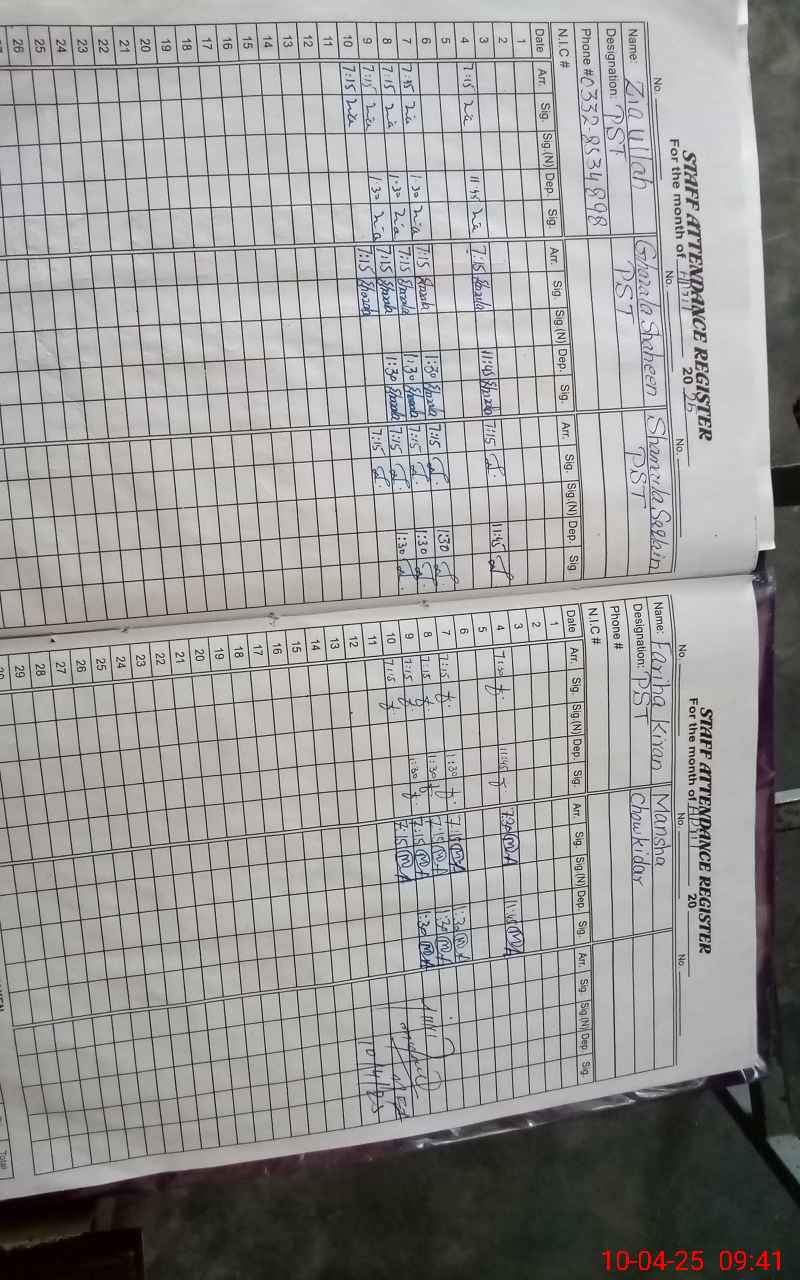 STAFF ATTENDANCE REGISTER
For the month of April 2025
No. No. No.
Name: Zia ullah Ghazala Shaheen Shamila
Designation: PST PST PST
Phone # 0332-8534898
N.I.C #
Date Arr. Sig. Sig.(N) Dep. Sig. Arr. Sig. Sig.(N) Dep. Sig. Arr. Sig. Sig.(N) Dep. Sig.
1
2
3
4 7:15 Zia 11:45 Zia 7:15 Ghazala 11:45 Ghazala 7:15 11:45
5
6
7 7:15 Zia 1:30 Zia 7:15 Ghazala 1:30 Ghazala 7:15 1:30
8 7:15 Zia 1:30 Zia 7:15 Ghazala 1:30 Ghazala 7:15 1:30
9 7:15 Zia 1:30 Zia 7:15 Ghazala 1:30 Ghazala 7:15 1:30
10 7:15 Zia 7:15 Ghazala 7:15
11
12
13
14
15
16
17
18
19
20
21
22
23
24
25
26
STAFF ATTENDANCE REGISTER
For the month of April 20
No. No. No.
Name: Fariha Kiran Mansha
Designation: PST Chowkidar
Phone #
N.I.C #
Date Arr. Sig. Sig.(N) Dep. Sig. Arr. Sig. Sig.(N) Dep. Sig. Arr. Sig. Sig.(N) Dep. Sig.
1
2
3
4 7:30 11:45 7:30 MA 11:45 MA
5
6
7 7:15 1:30 7:15 MA 1:30 MA
8 7:15 1:30 7:15 MA 1:30 MA
9 7:15 1:30 7:15 MA 1:30 MA
10 7:15 7:15 MA
11
12
13
14
15
16
17
18
19
20
21
22
23
24
25
26
27
28
29
10/4/25
Total
10-04-25 09:41